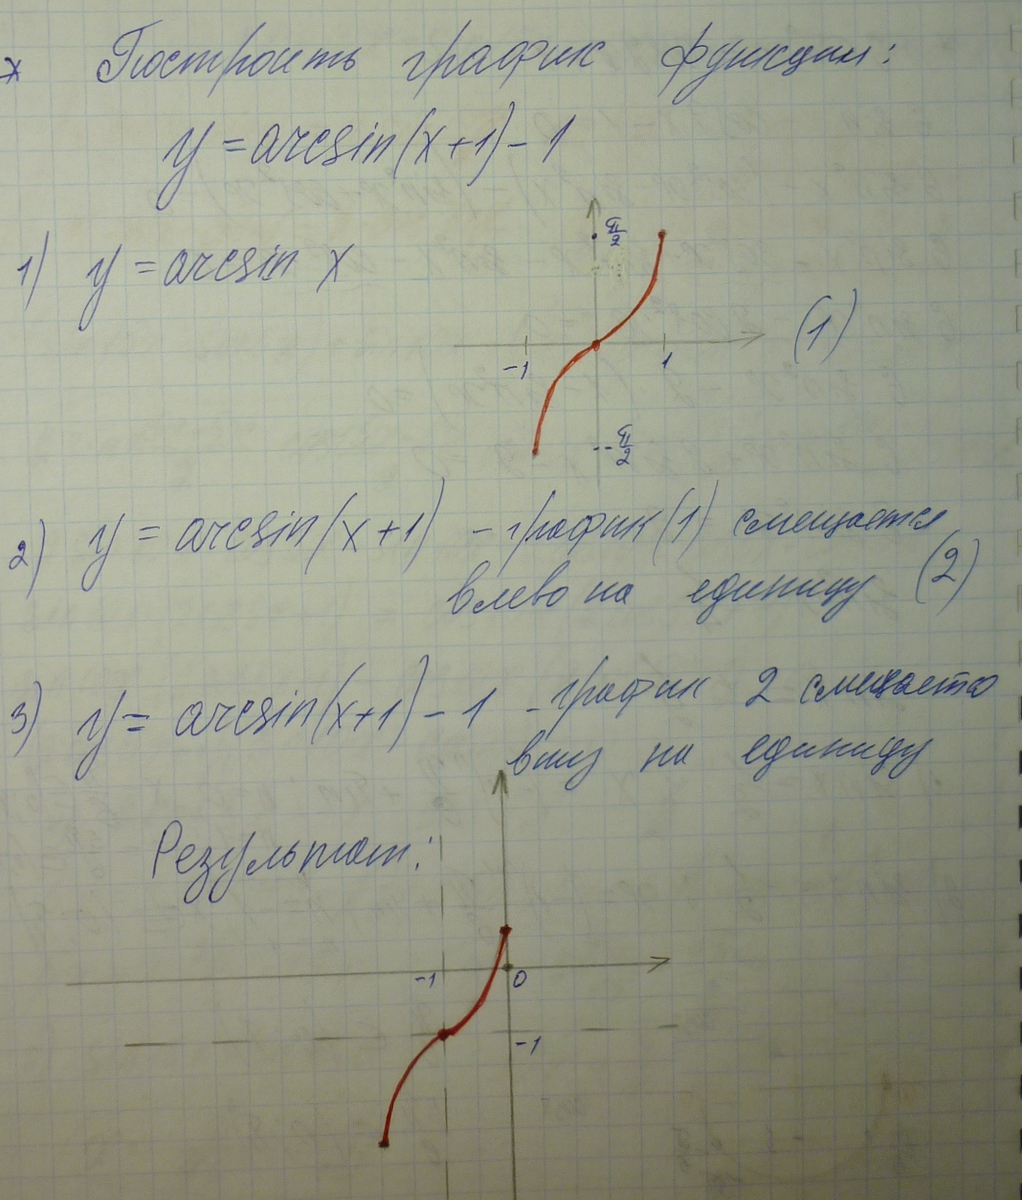 * Построить график функции:
y = arcsin(x+1) - 1
1) y = arcsin x
π/2
-1
1
(1)
-π/2
2) y = arcsin(x+1) - график (1) смещается
влево на единицу (2)
3) y = arcsin(x+1) - 1 - график 2 смещается
вниз на единицу
Результат:
-1
0
-1